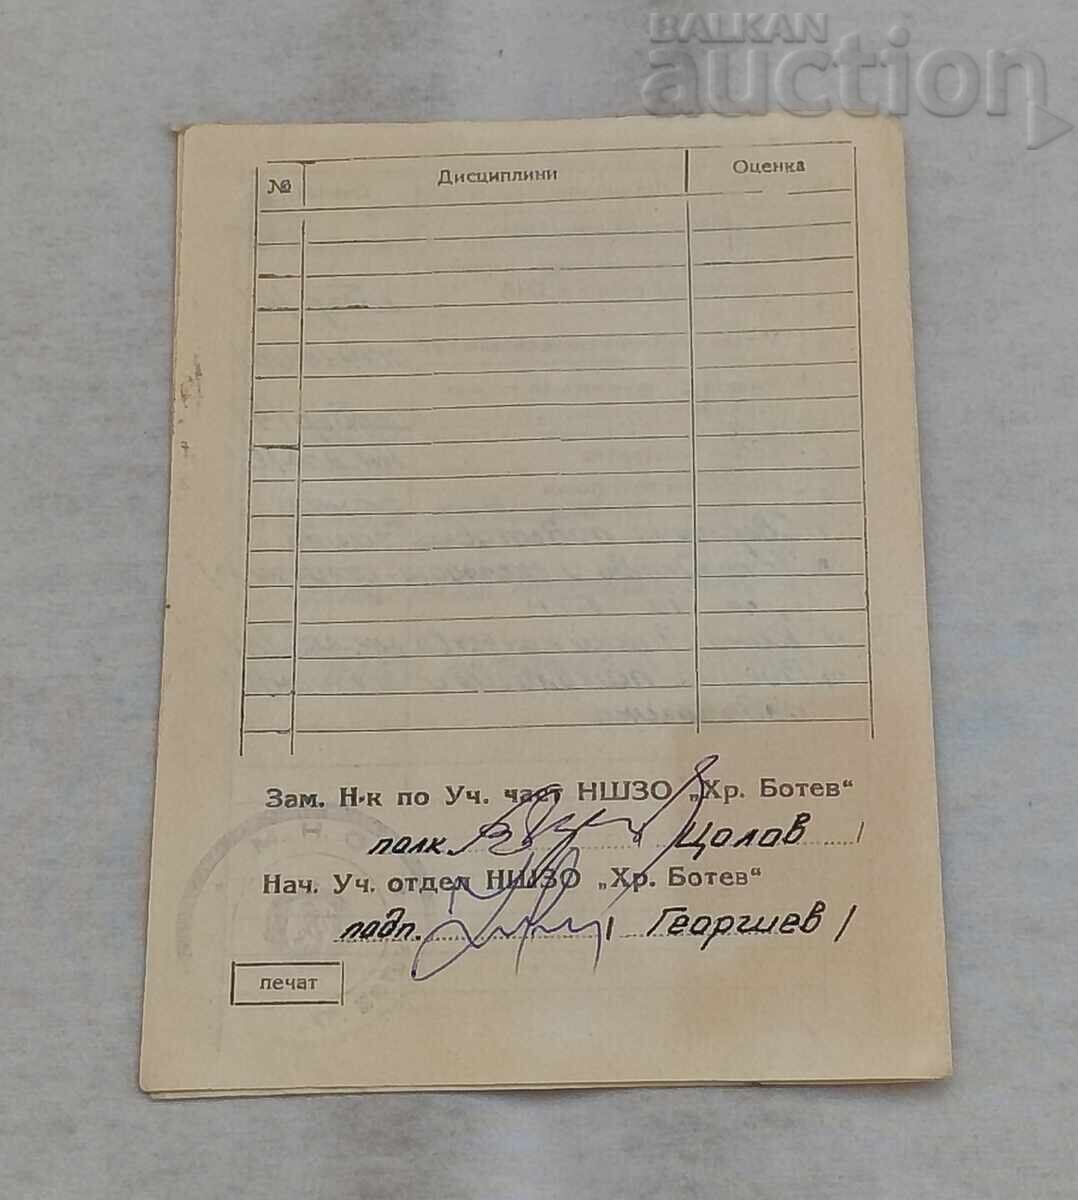 BALKAN
auction
№ Дисциплини Оценка
Зам. Н-к по Уч. част НШЗО „Хр. Ботев“
полк. / Цолов /
Нач. Уч. отдел НШЗО „Хр. Ботев“
подп. / Георгиев /
печат